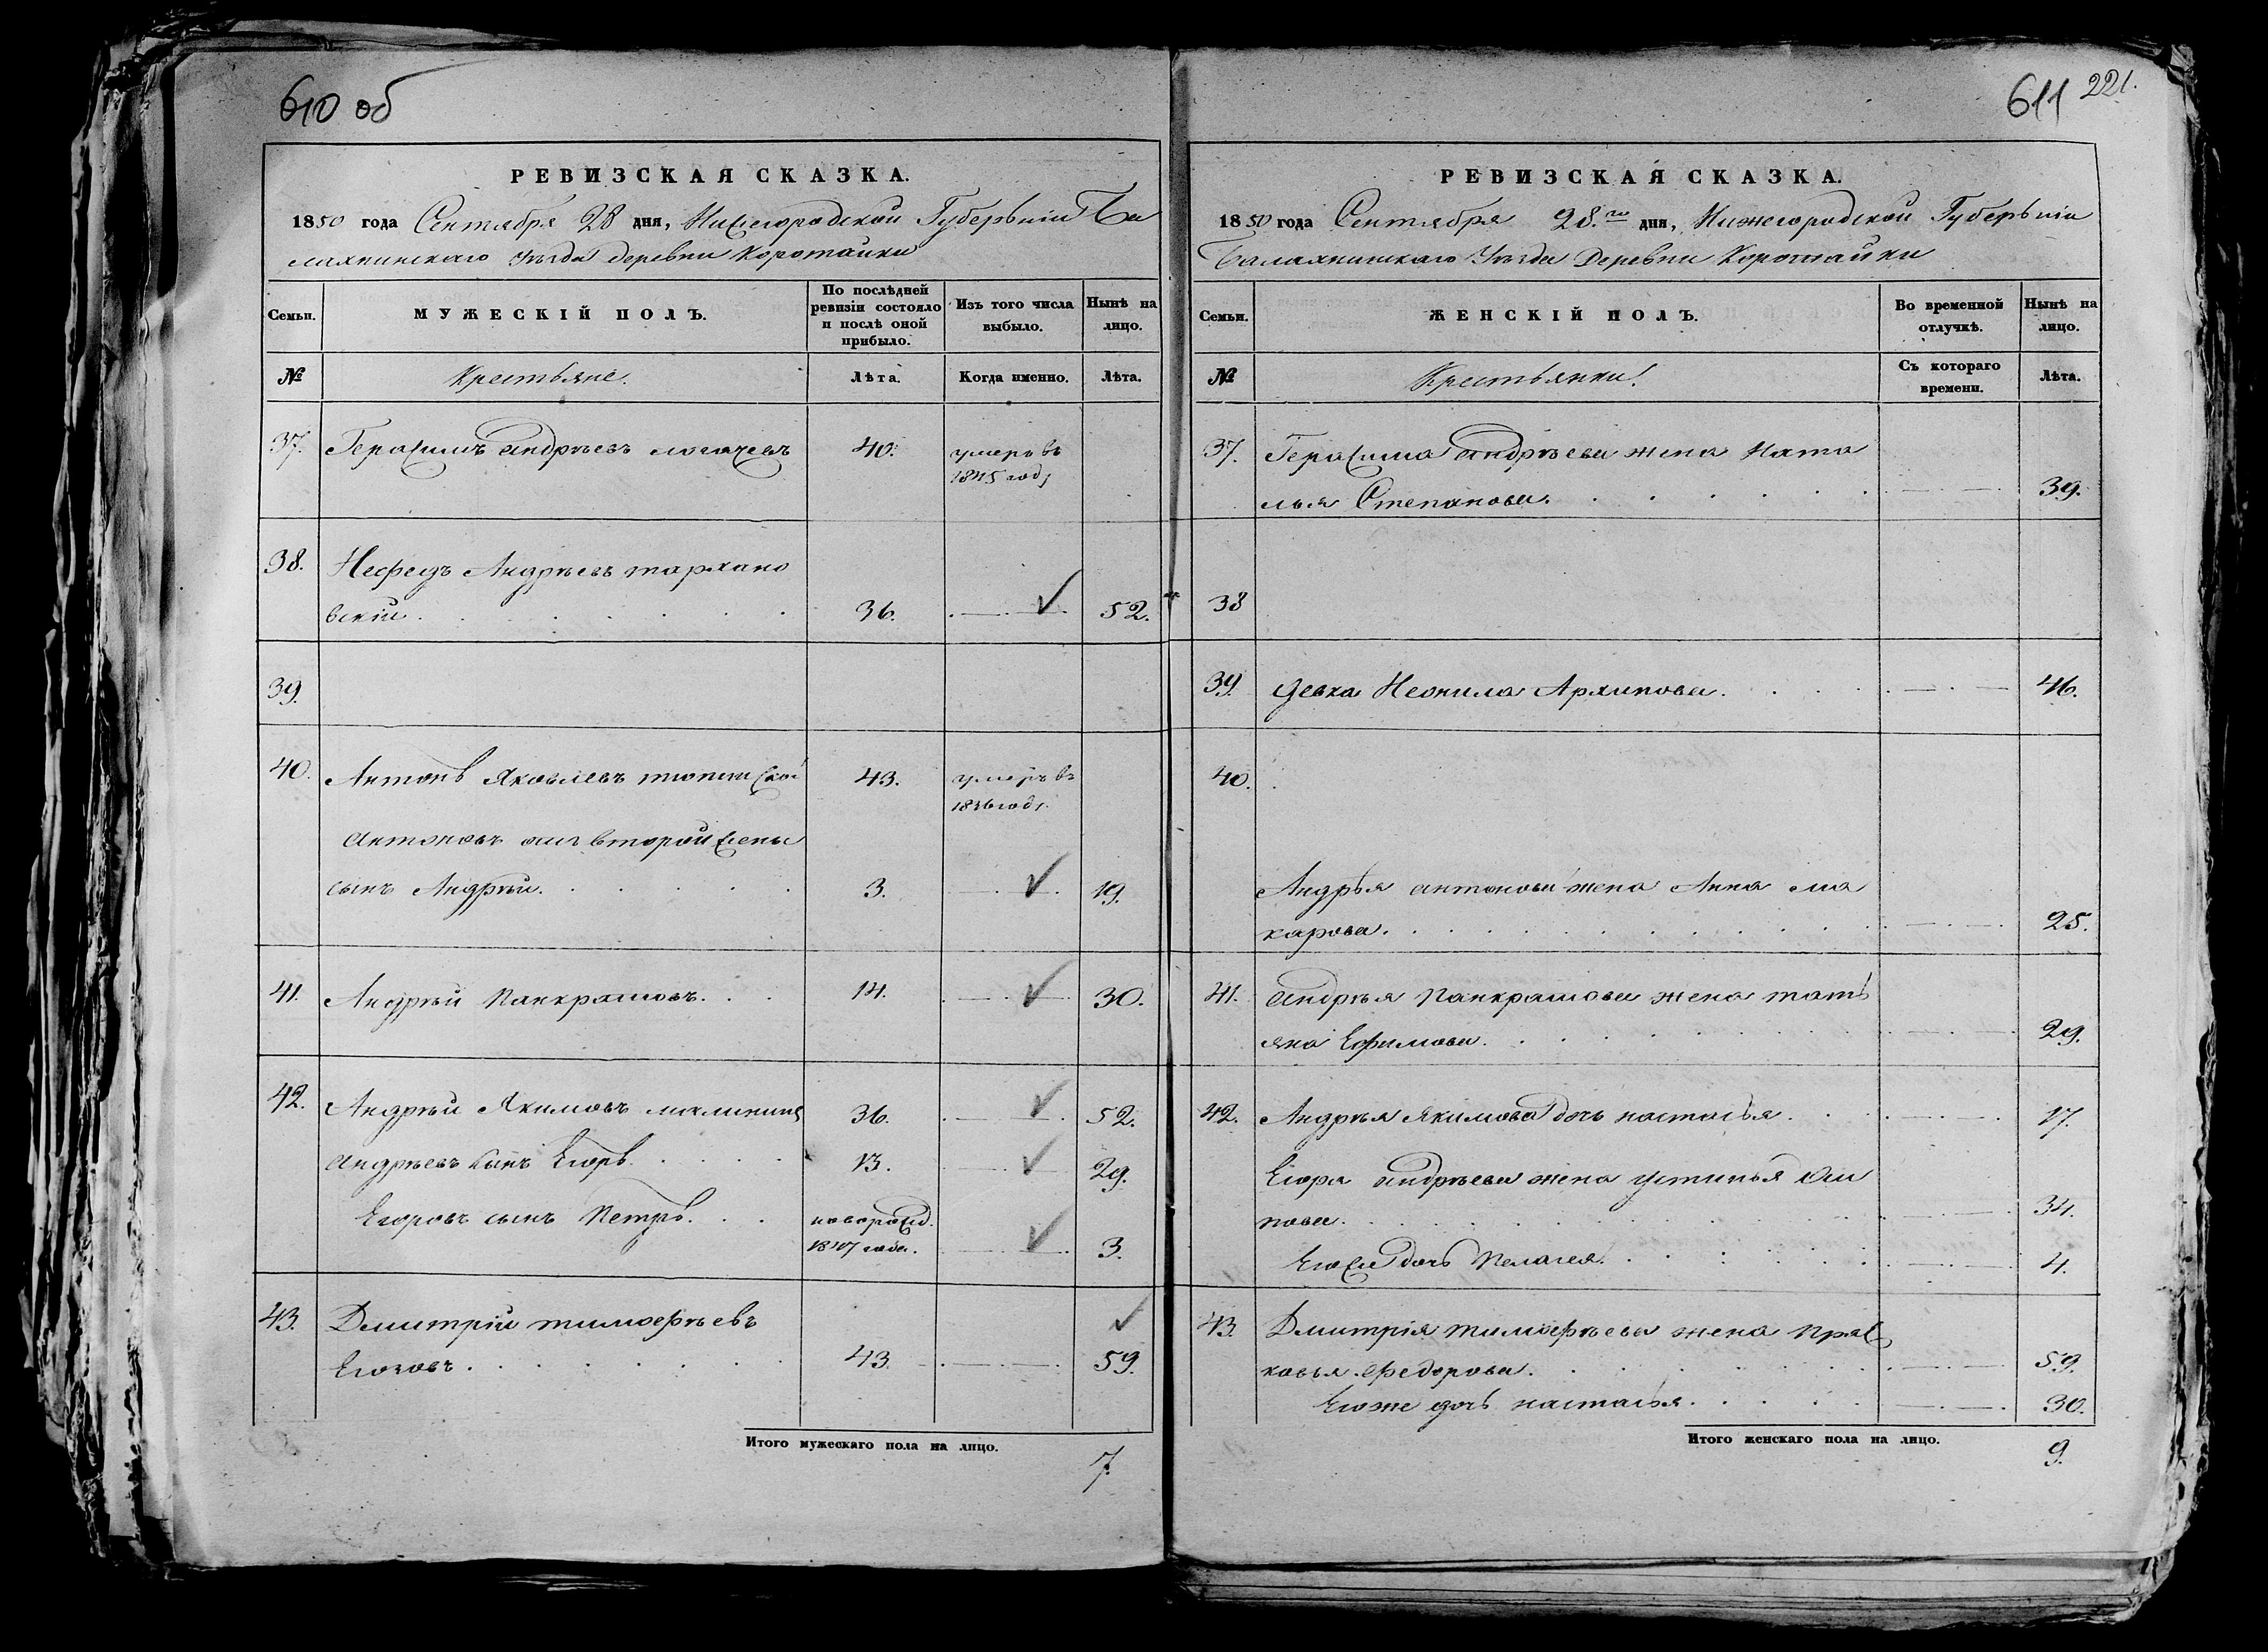 610 об
РЕВИЗСКАЯ СКАЗКА.
1850 года Сентября 28 дня, Нижегородской Губерьніи Ба
лахнинскаго Уѣзда деревни Коротайки
Семьи. МУЖЕСКІЙ ПОЛЪ. По послѣдней ревизіи состояло и послѣ оной прибыло. Изъ того числа выбыло. Нынѣ на лицо.
№ Крестьяне. Лѣта. Когда именно. Лѣта.
37. Герасимъ Андрѣевъ 40. умеръ въ
1845 году
38. Нефедъ Андрѣевъ тархано
вскій 36. 52.
39.
40. Антонъ Яковлевъ 43. умеръ въ
1836 году
Антоновъ отъ второй жены
сынъ Андрѣй. 3. 19.
41. Андрѣй Панкратовъ. 14. 30.
42. Андрѣй Якимовъ 36. 52.
Андрѣевъ сынъ Егоръ. 13. 29.
Егоровъ сынъ Петръ. новорожд.
1847 года. 3.
43. Дмитрій тимофѣевъ
43. 59.
Итого мужескаго пола на лицо. 7.
611 221.
РЕВИЗСКАЯ СКАЗКА.
1850 года Сентября 28.го дня, Нижегородской Губерьніи
Балахнинскаго Уѣзда Деревни Коротайки
Семьи. ЖЕНСКІЙ ПОЛЪ. Во временной отлучкѣ. Нынѣ на лицо.
№ Крестьянки. Съ котораго времени. Лѣта.
37. Герасима Андрѣева жена Ната
лья Степанова. 39.
38
39. девка Неонила Архипова. 46.
40.
Андрѣя Антонова жена Анна ма
карова. 25.
41. Андрѣя Панкратова жена тать
яна Ефимова. 29.
42. Андрѣя Якимова дочь настасья. 17.
Егора Андрѣева жена устинья Оси
пова. 34.
Егоже дочь Пелагея. 4.
43. Дмитрія тимофѣева жена Прас
ковья Федорова. 59.
Егоже дочь настасья. 30.
Итого женскаго пола на лицо. 9.